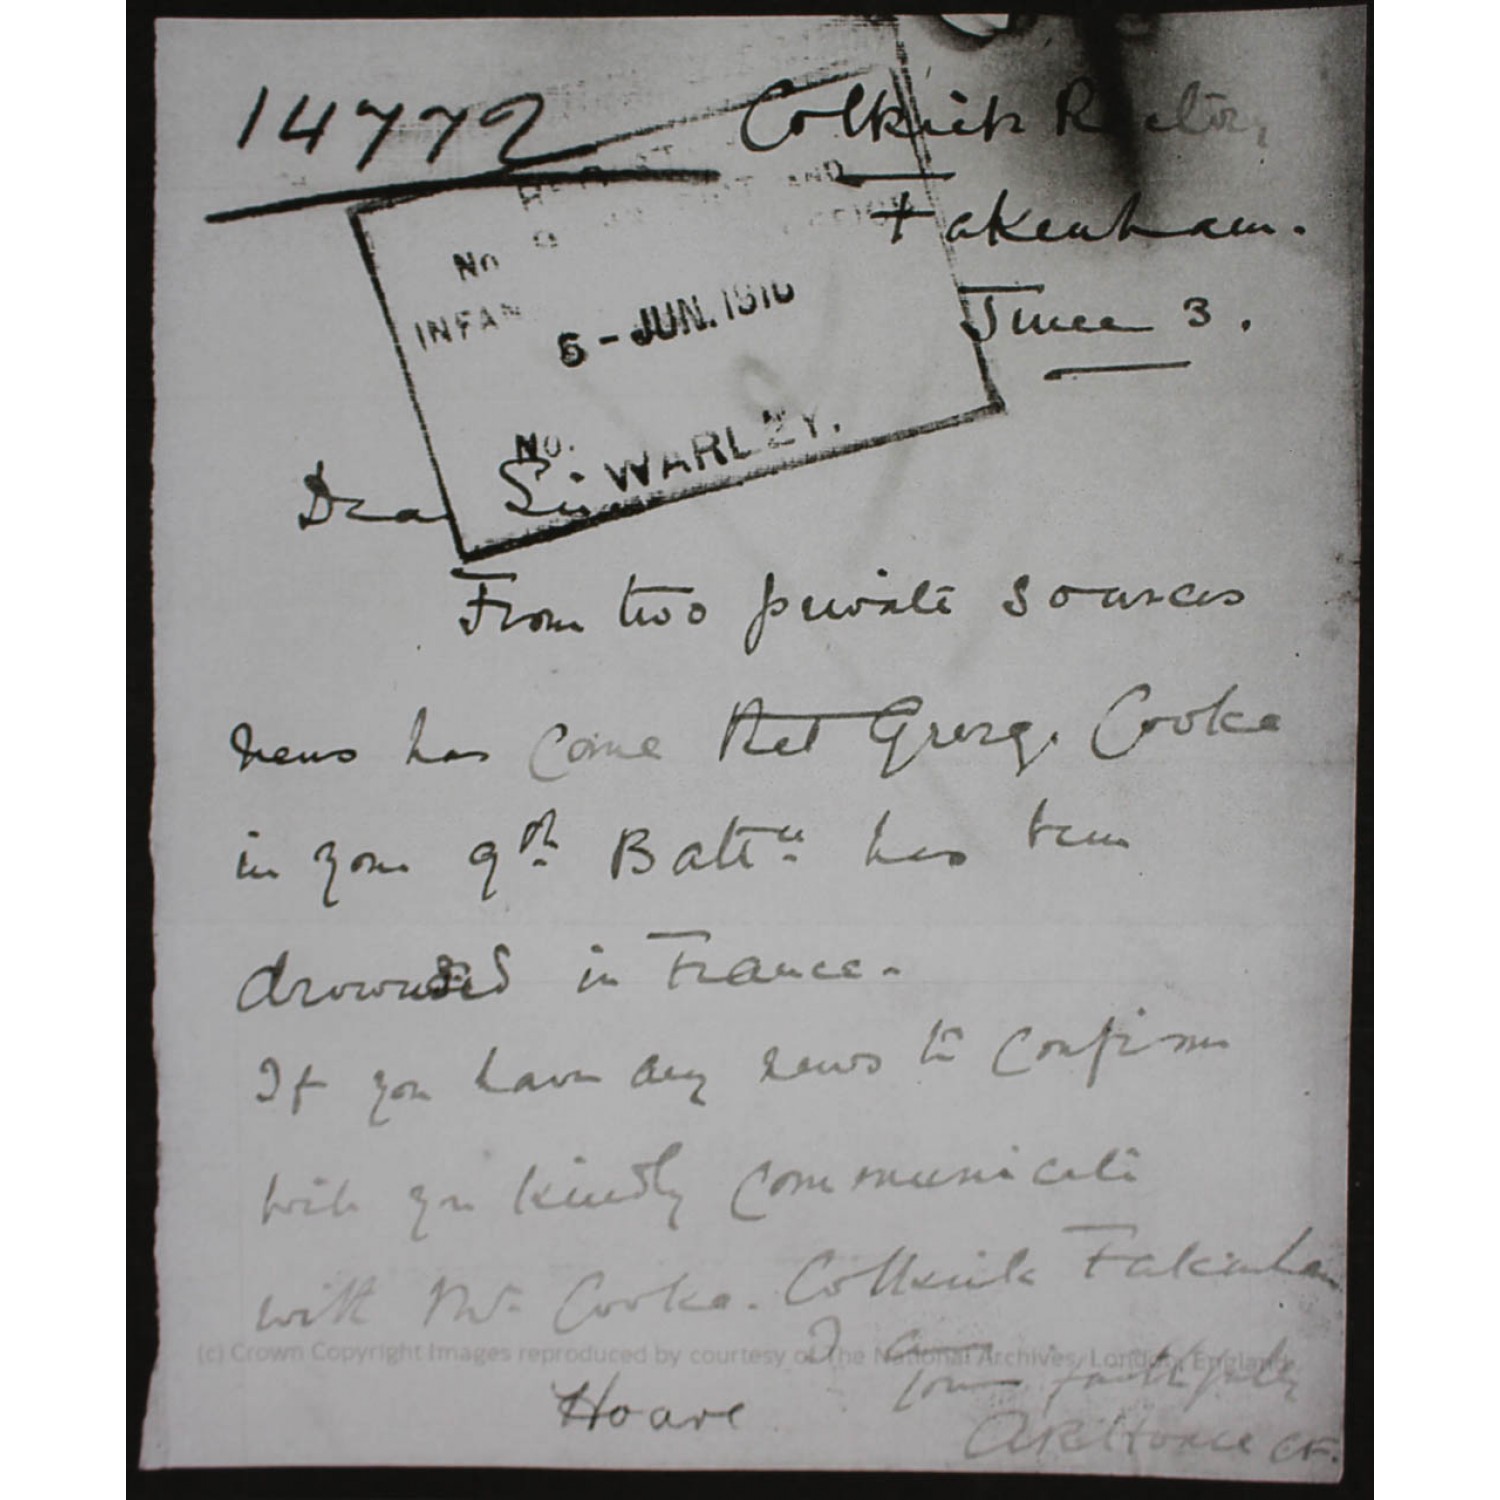 14772
Colkirk Rectory
Fakenham.
June 3.
No
INFAN
6 - JUN. 1916
No.
WARLEY.
Dear Sir
From two private sources
news has come that George Cooke
in your 9th. Battn. has been
drowned in France.
If you have any news to confirm
will you kindly communicate
with Mr Cooke. Colkirk Fakenham
I am
yours faithfully
Hoare
A R Hoare CF.
(c) Crown Copyright Images reproduced by courtesy of The National Archives, London, England.